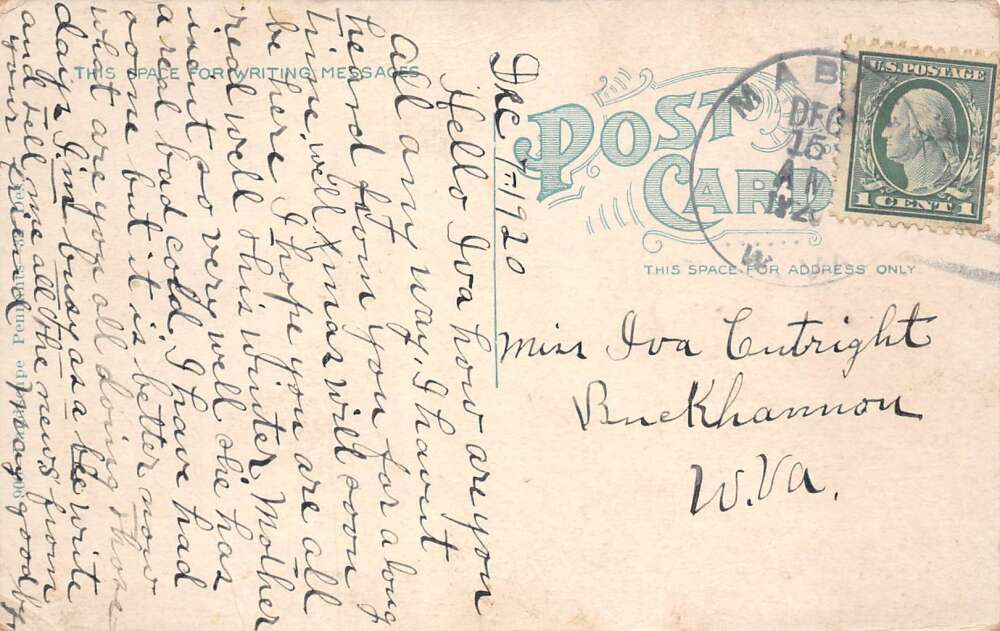 THIS SPACE FOR WRITING MESSAGES
Dec, 7-1920
Hello Iva how are you
all any way. I havnt
heard from you for a long
time, well Xmas will soon
be here I hope you are all
real well this winter, Mother
isent so very well she has
a real bad cold, I have had
one but it is better now
what are you all doing those
days I'm busy as a bee write
and tell me all the news from
your friend May goodby
POST CARD
THIS SPACE FOR ADDRESS ONLY
MAB
DEC
15
AM
W
U.S. POSTAGE
1 CENT 1
Miss Iva Cutright
Buckhannon
W.Va.